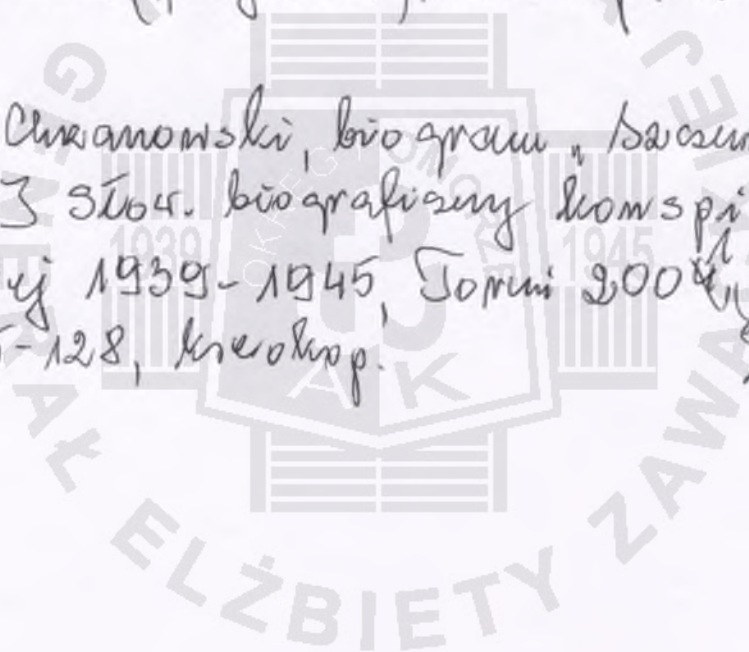 Chrzanowski, biogram „Szczen
3 Słow. biograficzny konspi
ej 1939-1945, Toruń 2004,
-128, kserokop.
1939
1945
OKRĘG POMORZE
AK
ELŻBIETY ZAWA